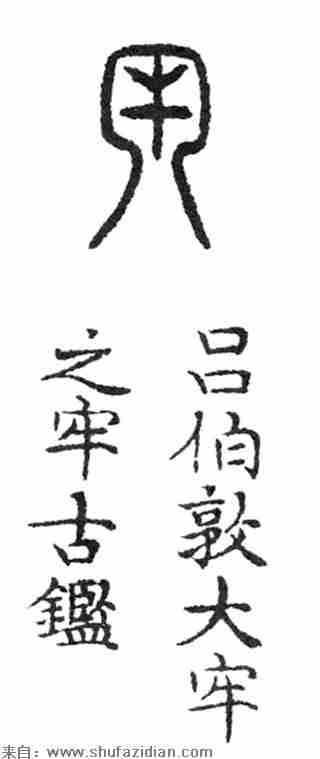 牢
吕伯敦大牢
之牢古鑑
来自：www.shufazidian.com